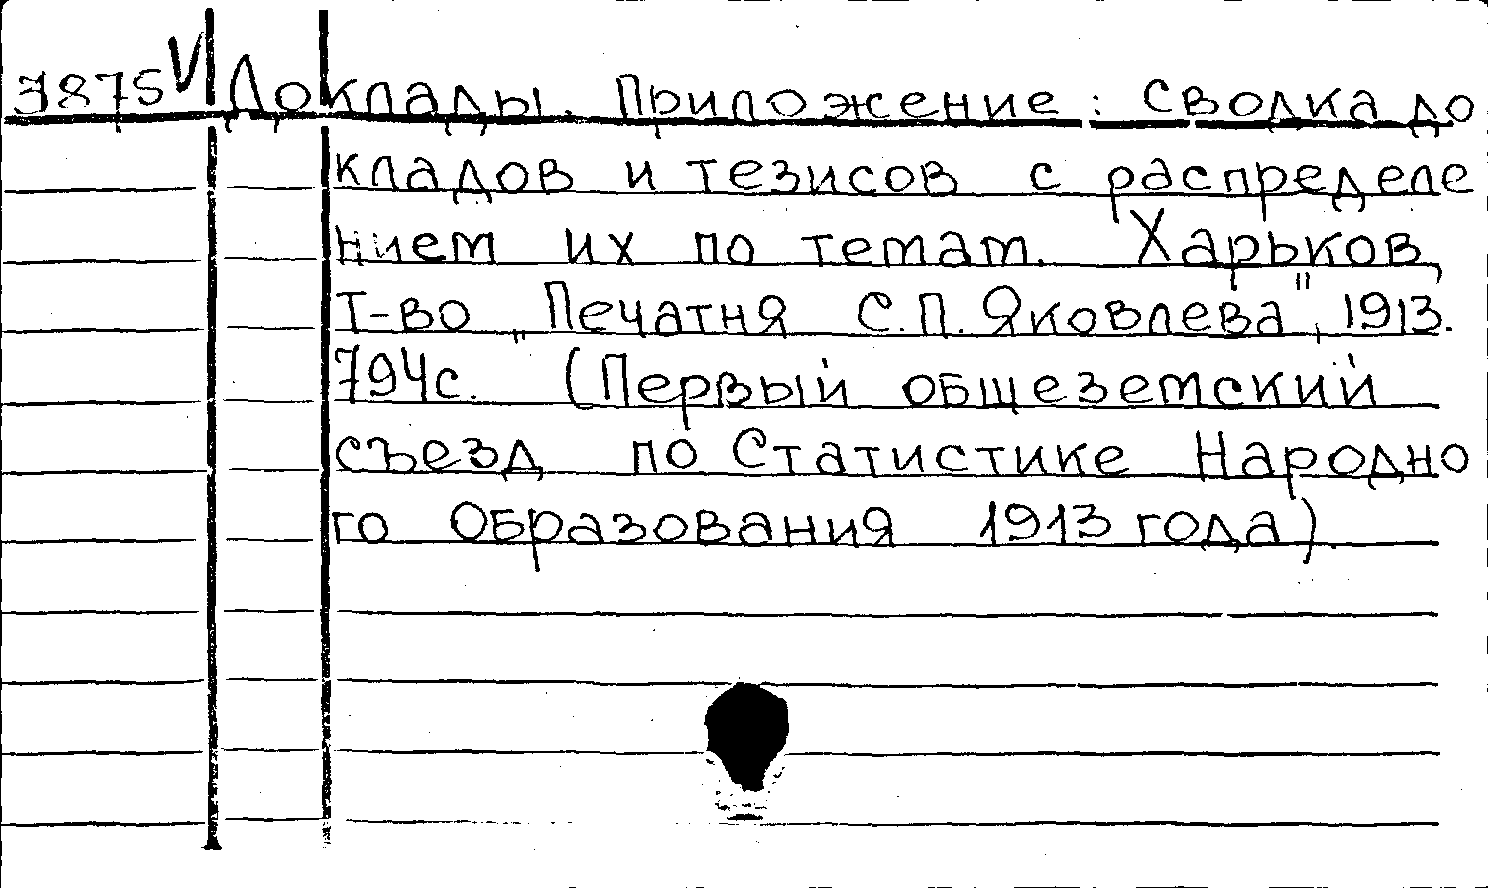 7875 V Доклады. Приложение: Сводка до
кладов и тезисов с распределе
нием их по темам. Харьков,
Т-во „Печатня С.П. Яковлева", 1913.
794с. (Первый общеземский
съезд по Статистике Народно
го Образования 1913 года).